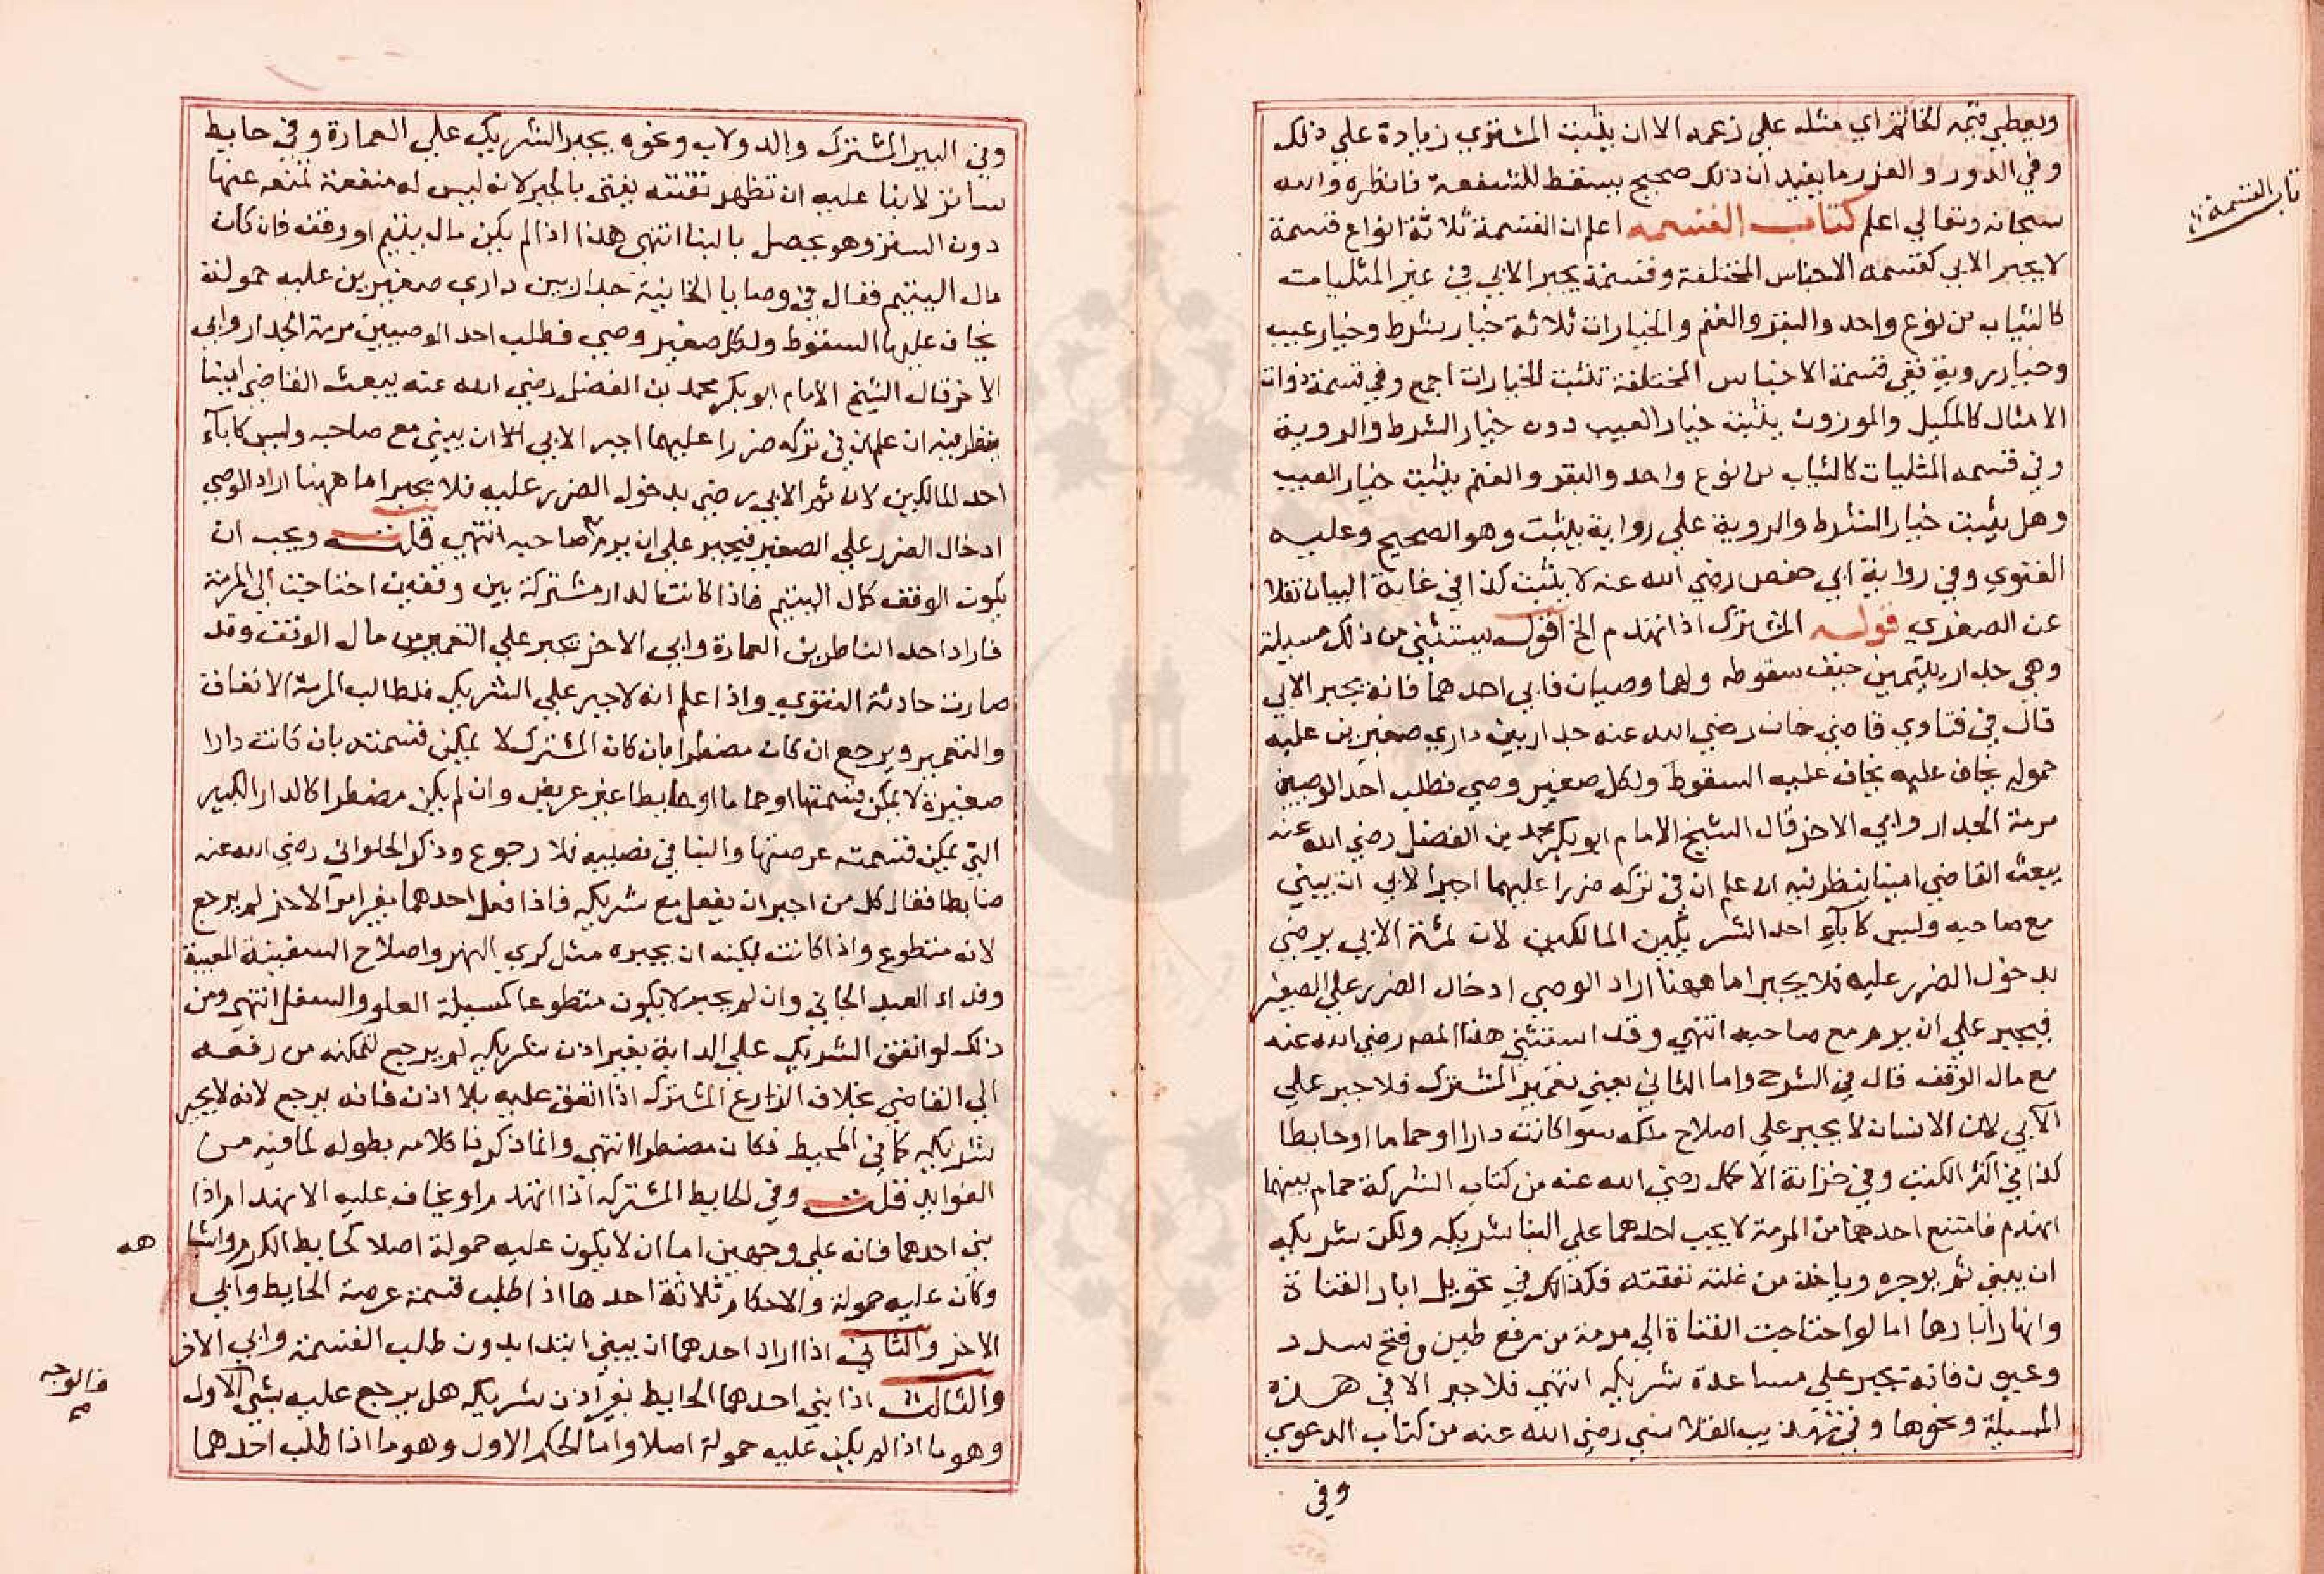 ويعطي قيمة الخاتم اي مثله علي زعمه الا ان يثبت المشتري زيادة علي ذلك
وفي الدور والغرر ما يفيد ان ذلك صحيح يسقط للشفعة فانظره والله
سبحانه وتعالي اعلم كتاب القسمه اعلم ان القسمة ثلاثة انواع قسمة
لا يجبر الابي كقسمه الاجناس المختلفة وقسمة يجبر الابي في غير المثليات
كالثياب من نوع واحد والبقر والغنم والخيارات ثلاثة خيار شرط وخيار عيب
وخيار روية ففي قسمة الاجناس المختلفة تثبت الخيارات اجمع وفي قسمة ذوات
الامثال كالمكيل والموزون يثبت خيار العيب دون خيار الشرط والروية
وفي قسمه المثليات كالثياب من نوع واحد والبقر والغنم يثبت خيار العيب
وهل يثبت خيار الشرط والروية علي رواية يثبت وهو الصحيح وعليه
الفتوي وفي رواية ابي حفص رضي الله عنه لا يثبت كذا في غاية البيان نقلا
عن الصغري قوله المشترك اذا انهدم الخ اقول يستثني من ذلك مسيلة
وهي جدار يتيمين خيف سقوطه ولهما وصيان فابي احدهما فانه يجبر الابي
قال في فتاوي قاضي خان رضي الله عنه جدار بين داري صغيرين عليه
حموله يخاف عليه يخاف عليه السقوط ولكل صغير وصي فطلب احد الوصيين
مرمة الجدار وابي الاخر قال الشيخ الامام ابو بكر محمد بن الفضل رضي الله عنه
يبعث القاضي امينا ينظر فيه ان علم ان في تركه ضررا عليهما اجبر الابي ان يبني
مع صاحبه وليس كاباء احد الشريكين المالكين لان ثمة الابي يرضي
بدخول الضرر عليه فلا يجبر اما ههنا اراد الوصي ادخال الضرر علي الصغير
فيجبر علي ان يرم مع صاحبه انتهي وقد استثني هذا المص رضي الله عنه
مع مال الوقف قال في الشرح واما الثاني يعني تعمير المشترك فلا جبر علي
الآبي لان الانسان لا يجبر علي اصلاح ملكه سوا كانت دارا او حماما او حايطا
كذا في اكثر الكتب وفي خزانة الاكمل رضي الله عنه من كتاب الشركة حمام بينهما
انهدم فامتنع احدهما من المرمة لا يجب احدهما علي البنا شريكه ولكن شريكه
ان يبني ثم يوجره وياخذ من غلته نفقته فكذلك في تحويل ابار القناة
وانهار ابارها اما لو احتاجت القناة الي مرمة من رفع طين وفتح سدد
وعيون فانه يجبر علي مساعدة شريكه انتهي فلا جبر الا في هذه
المسيلة ونحوها وفي تهذيب القلانسي رضي الله عنه من كتاب الدعوي
وفي
وفي البير المشترك والدولاب ونحوه يجبر الشريك علي العمارة وفي حايط
ساتر لا بنا عليه ان تظهر تعنته يفتي بالجبر لانه ليس له منفعة تمنعه عنها
دون الستر وهو يحصل بالبنا انتهي هذا اذا لم يكن مال يتيم او وقف فان كان
مال اليتيم فقال في وصايا الخانية جدار بين داري صغيرين عليه حمولة
يخاف عليها السقوط ولكل صغير وصي فطلب احد الوصيين مرمة الجدار وابي
الاخر قال الشيخ الامام ابو بكر محمد بن الفضل رضي الله عنه يبعث القاضي امينا
ينظر فيه ان علم ان في تركه ضررا عليهما اجبر الابي ان يبني مع صاحبه وليس كاباء
احد المالكين لان ثم الابي رضي بدخول الضرر عليه فلا يجبر اما ههنا اراد الوصي
ادخال الضرر علي الصغير فيجبر علي ان يرم صاحبه انتهي قلت ويجب ان
يكون الوقف كمال اليتيم فاذا كانت الدار مشتركة بين وقفين احتاجت الي المرمة
فاراد احد الناظرين العمارة وابي الاخر يجبر علي التعمير من مال الوقف وقد
صارت حادثة الفتوي واذا علم انه لا جبر علي الشريك فلطالب المرمة الانفاق
والتعمير ويرجع ان كان مضطرا بان كان المشترك لا يمكن قسمته بان كانت دارا
صغيرة لا يمكن قسمتها او حماما او حايطا غير عريض وان لم يكن مضطرا كالدار الكبير
التي يمكن قسمته عرصتها والبنا في نصيبه فلا رجوع وذكر الحلواني رضي الله عنه
ضابطا فقال كل من اجبر ان يفعل مع شريكه فاذا فعل احدهما بغير امر الاخر لم يرجع
لانه متطوع واذا كانت يمكنه ان يجبره مثل كري النهر واصلاح السفينة المعيبة
وفداء العبد الجاني وان لم يجبر لا يكون متطوعا كمسيلة العلو والسفل انتهي ومن
ذلك لو انفق الشريك علي الدابة بغير اذن شريكه لم يرجع لتمكنه من رفعه
الي القاضي بخلاف الزارع المشترك اذا انفق عليه بلا اذن فانه يرجع لانه لا يجبر
شريكه كما في المحيط فكان مضطرا انتهي وانما ذكرنا كلامه بطوله لما فيه من
الفوايد قلت وفي الحايط المشتركه اذا انهدم او يخاف عليه الانهدام اذا
بني احدهما فانه علي وجهين اما ان لا يكون عليه حمولة اصلا كحايط الكرم واما
وكان عليه حمولة والاحكام ثلاثة احدها اذا طلب قسمة عرصة الحايط وابي
الاخر والثاني اذا اراد احدهما ان يبني ابتدا بدون طلب القسمة وابي الاخر
والثالث اذا بني احدهما الحايط بغير اذن شريكه هل يرجع عليه بشي الاول
وهو ما اذا لم يكن عليه حمولة اصلا واما الحكم الاول وهو ما اذا طلب احدهما
فالوجه